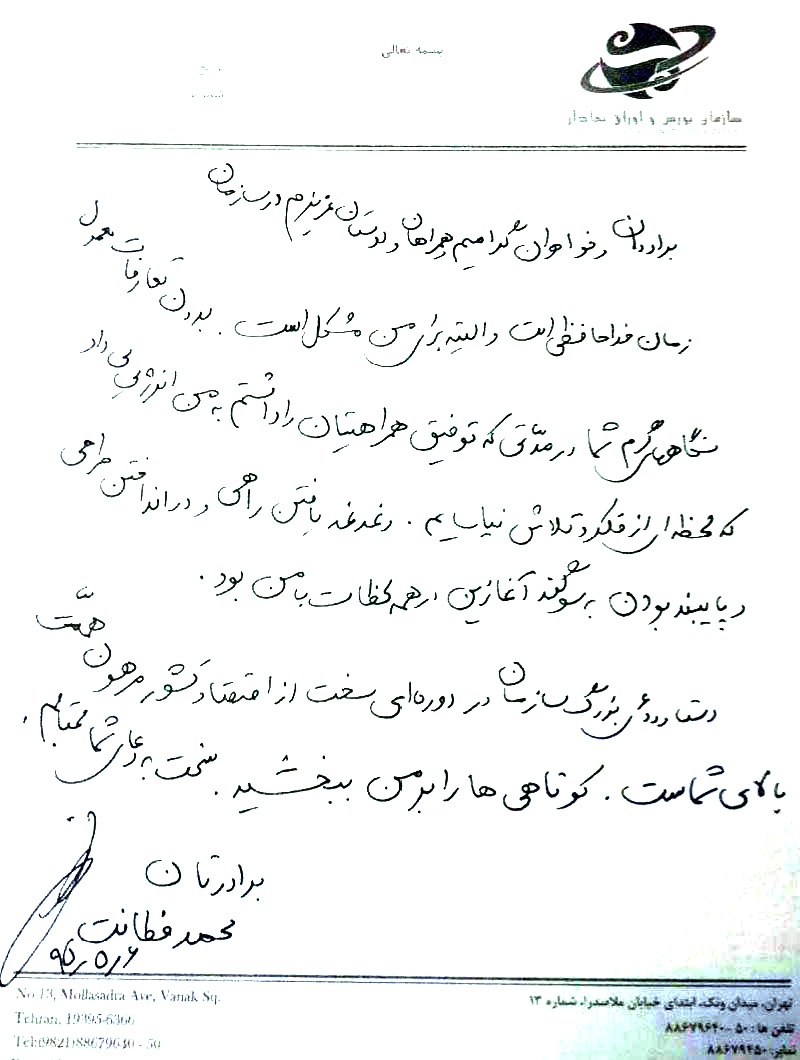 بسمه تعالی
سازمان بورس و اوراق بهادار
برادران و خواهران گرامیم همراهان و دوستان عزیزم در سازمان
زمان خداحافظی است و البته برای من مشکل است. بدون تعارفات معمول
نگاههای گرم شما در مدّتی که توفیق همراهیتان را داشتم به من انرژیی می داد
که لحظه ای از فکر و تلاش نیاسایم. دغدغه یافتن راهی و درانداختن طرحی
و پایبند بودن به سوگند آغازین در همه لحظات با من بود.
دستاوردهای بزرگ سازمان در دوره‌ای سخت از اقتصاد کشور مرهون همّت
بالای شماست. کوتاهی ها را بر من ببخشید. سخت به دعای شما محتاجم.
برادرتان
محمد فطانت
۹۵/۵/۶
تهران، میدان ونک، ابتدای خیابان ملاصدرا، شماره ۱۳
تلفن ها: ۵۰ - ۸۸۶۷۹۶۴۰
نمابر: ۸۸۶۷۹۴۵۰
No 13, Mollasadra Ave, Vanak Sq.
Tehran, 19395-6366
Tel:(9821)88679640 - 50